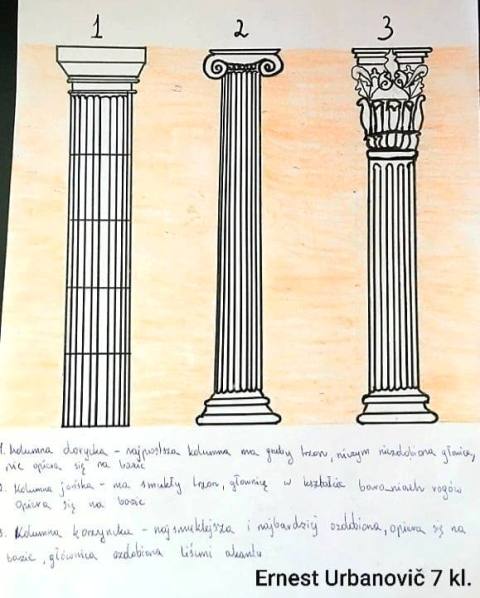 1 2 3
1. Kolumna dorycka - najprostsza kolumna ma gruby trzon, niczym niezdobiona głowica,
nie opiera się na bazie
2. Kolumna jońska - ma smukły trzon, głownicę w kształcie baranich rogów
opiera się na bazie
3. Kolumna koryncka - najsmuklejsza i najbardziej ozdobiona, opiera się na
bazie, głównica ozdobiona liśćmi akantu
Ernest Urbanovič 7 kl.